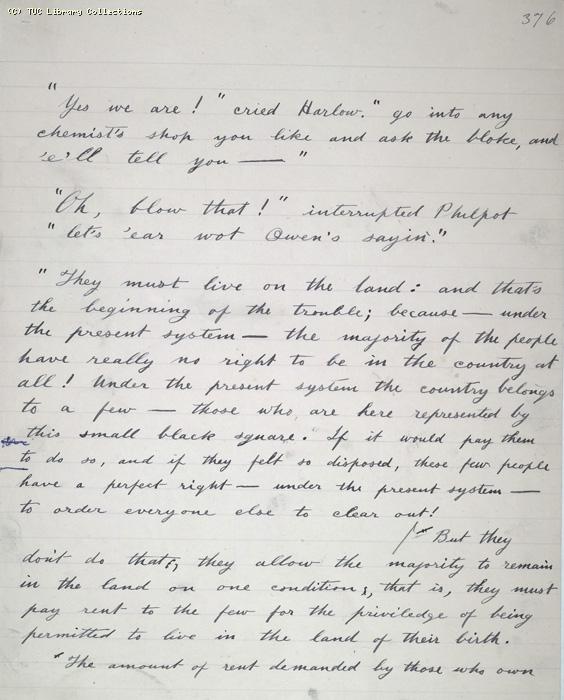 (C) TUC Library Collections
376
"Yes we are!" cried Harlow. "go into any
chemist's shop you like and ask the bloke, and
'e'll tell you — "
"Oh, blow that!" interrupted Philpot
"let's 'ear wot Owen's sayin'."
"They must live on the land: and that's
the beginning of the trouble; because — under
the present system — the majority of the people
have really no right to be in the country at
all! Under the present system the country belongs
to a few — those who are here represented by
this small black square. If it would pay them
to do so, and if they felt so disposed, these few people
have a perfect right — under the present system —
to order everyone else to clear out!
"But they
don't do that; they allow the majority to remain
in the land on one condition; that is, they must
pay rent to the few for the priviledge of being
permitted to live in the land of their birth.
"The amount of rent demanded by those who own